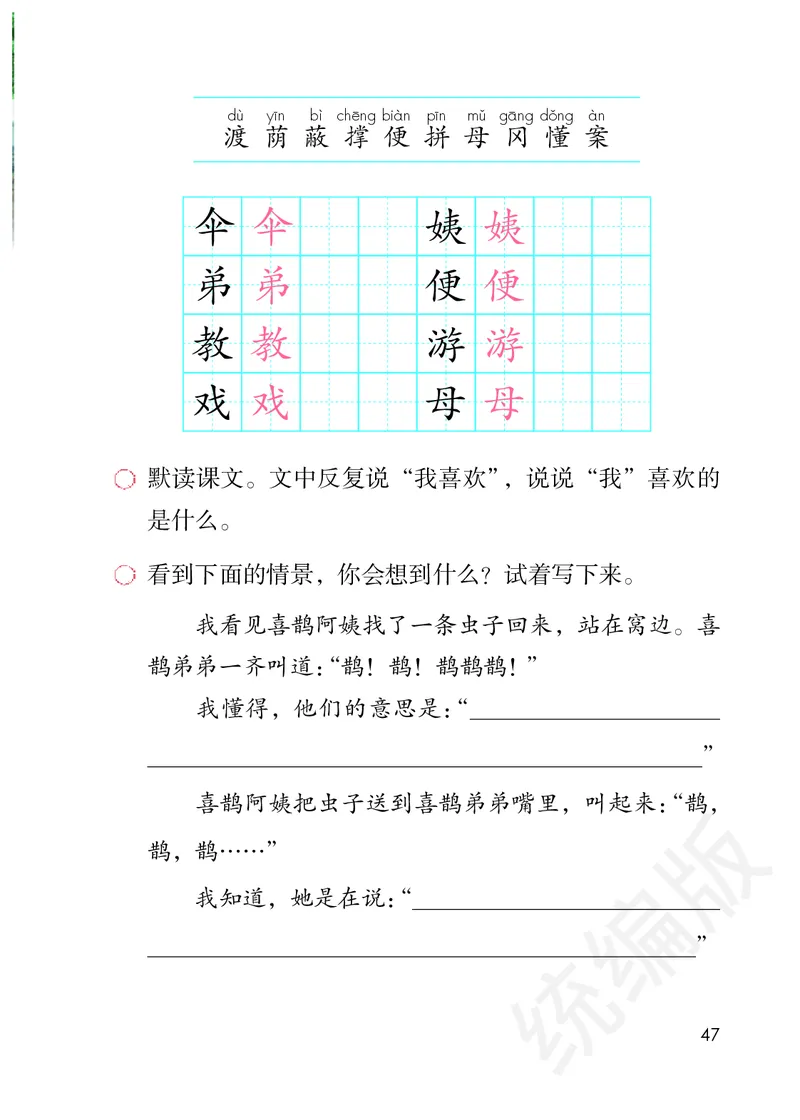 dù yīn bì chēng biàn pīn mǔ gāng dǒng àn
渡 荫 蔽 撑 便 拼 母 冈 懂 案
伞 伞 姨 姨
弟 弟 便 便
教 教 游 游
戏 戏 母 母
默读课文。文中反复说“我喜欢”，说说“我”喜欢的
是什么。
看到下面的情景，你会想到什么？试着写下来。
我看见喜鹊阿姨找了一条虫子回来，站在窝边。喜
鹊弟弟一齐叫道：“鹊！鹊！鹊鹊鹊！”
我懂得，他们的意思是：“
”
喜鹊阿姨把虫子送到喜鹊弟弟嘴里，叫起来：“鹊，
鹊，鹊……”
我知道，她是在说：“
”
统编版
47